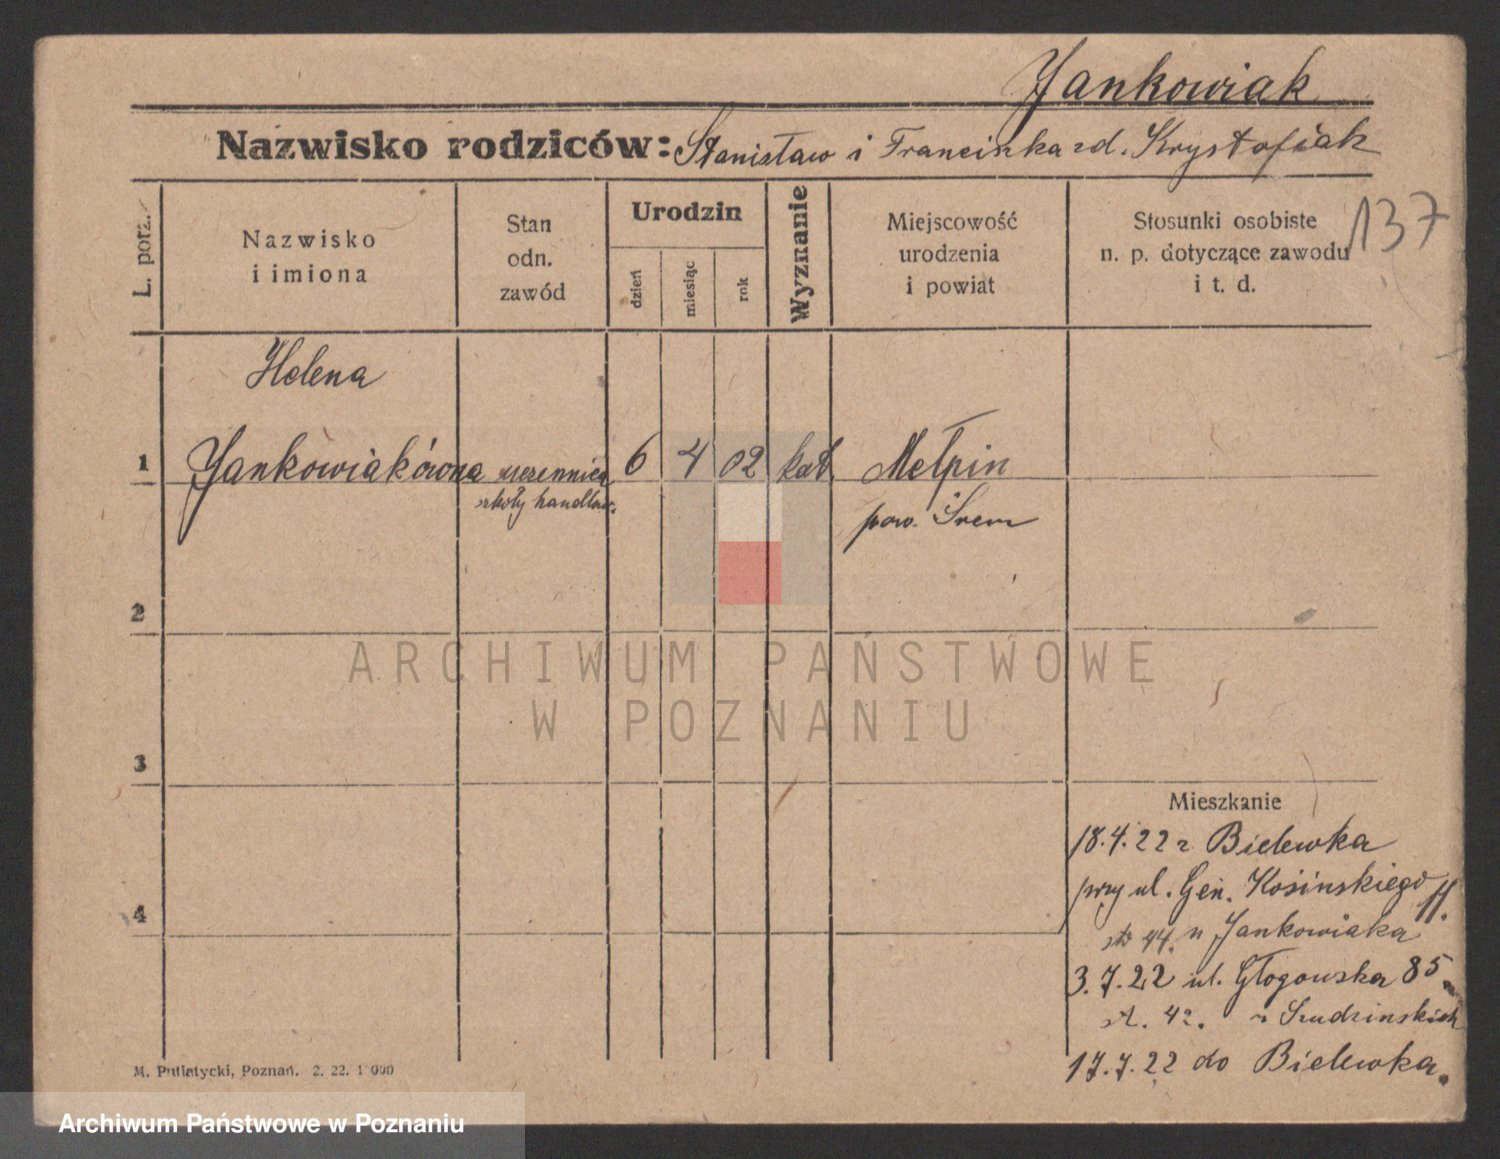 Jankowiak
Nazwisko rodziców: Stanisław i Franciszka zd. Krystofiak
137
L. porz.
Nazwisko
i imiona
Stan
odn.
zawód
Urodzin
dzień
miesiąc
rok
Wyznanie
Miejscowość
urodzenia
i powiat
Stosunki osobiste
n. p. dotyczące zawodu
i t. d.
Helena
1 Jankowiakówna uczennica 6 4 02 kat. Mełpin
szkoły handlow. pow. Śrem
2
ARCHIWUM PAŃSTWOWE
W POZNANIU
3
Mieszkanie
18.4.22 z Bielewka
przy ul. Gen. Kosińskiego 11.
44. u Jankowiaka
3.7.22 ul. Głogowska 85
17.7.22 do Bielewka.
4
M. Putiatycki, Poznań. 2. 22. 1000
Archiwum Państwowe w Poznaniu